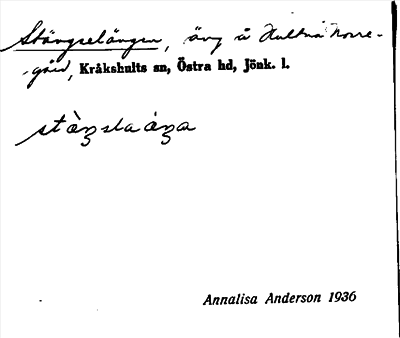 Stängselängen, äng å Hultna Norre-
-gård, Kråkshults sn, Östra hd, Jönk. l.
Annalisa Anderson 1936